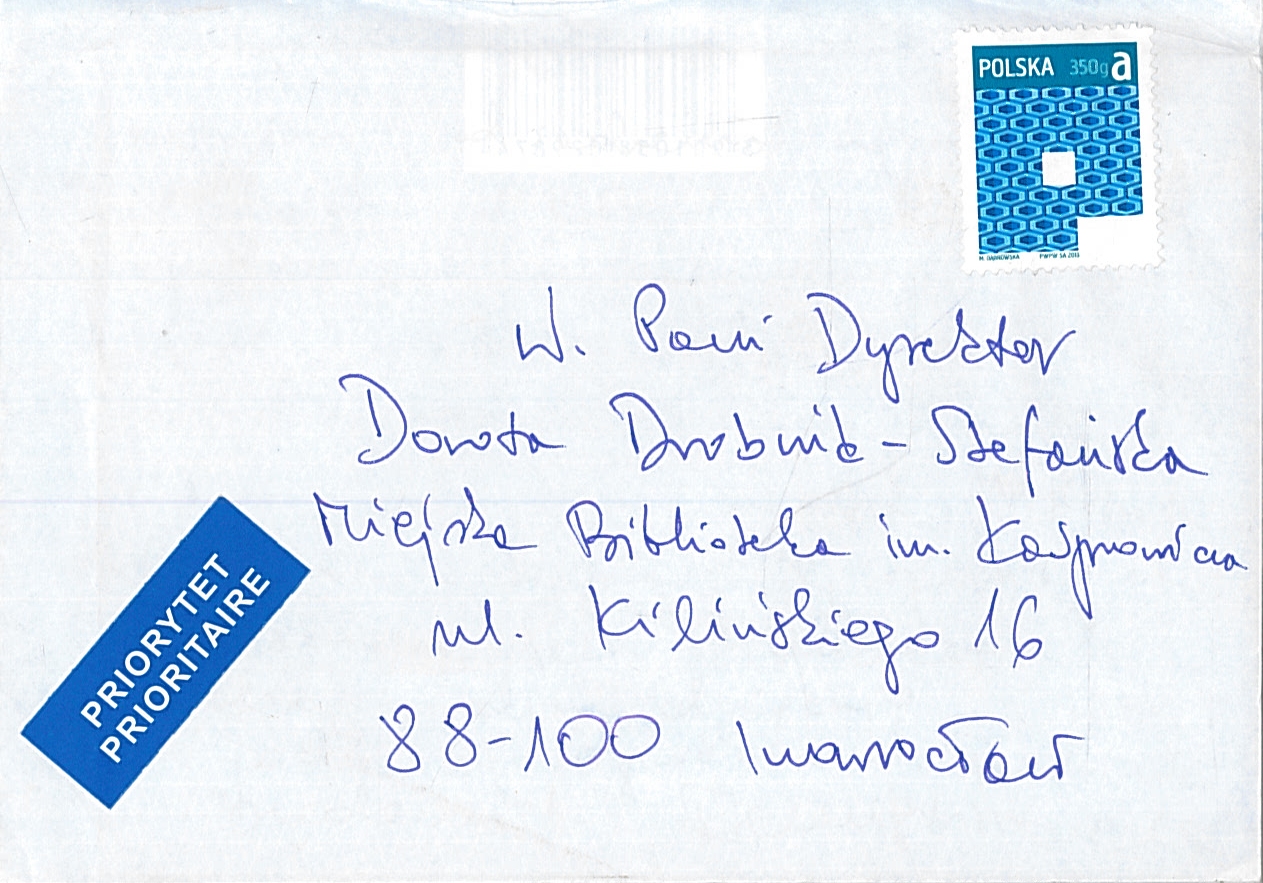 POLSKA 350g a
M. DĄBROWSKA PWPW SA 2013
W. Pani Dyrektor
Dorota Drobnik-Stefańska
Miejska Biblioteka im. Kasprowicza
ul. Kilińskiego 16
88-100 Inowrocław
PRIORYTET
PRIORITAIRE